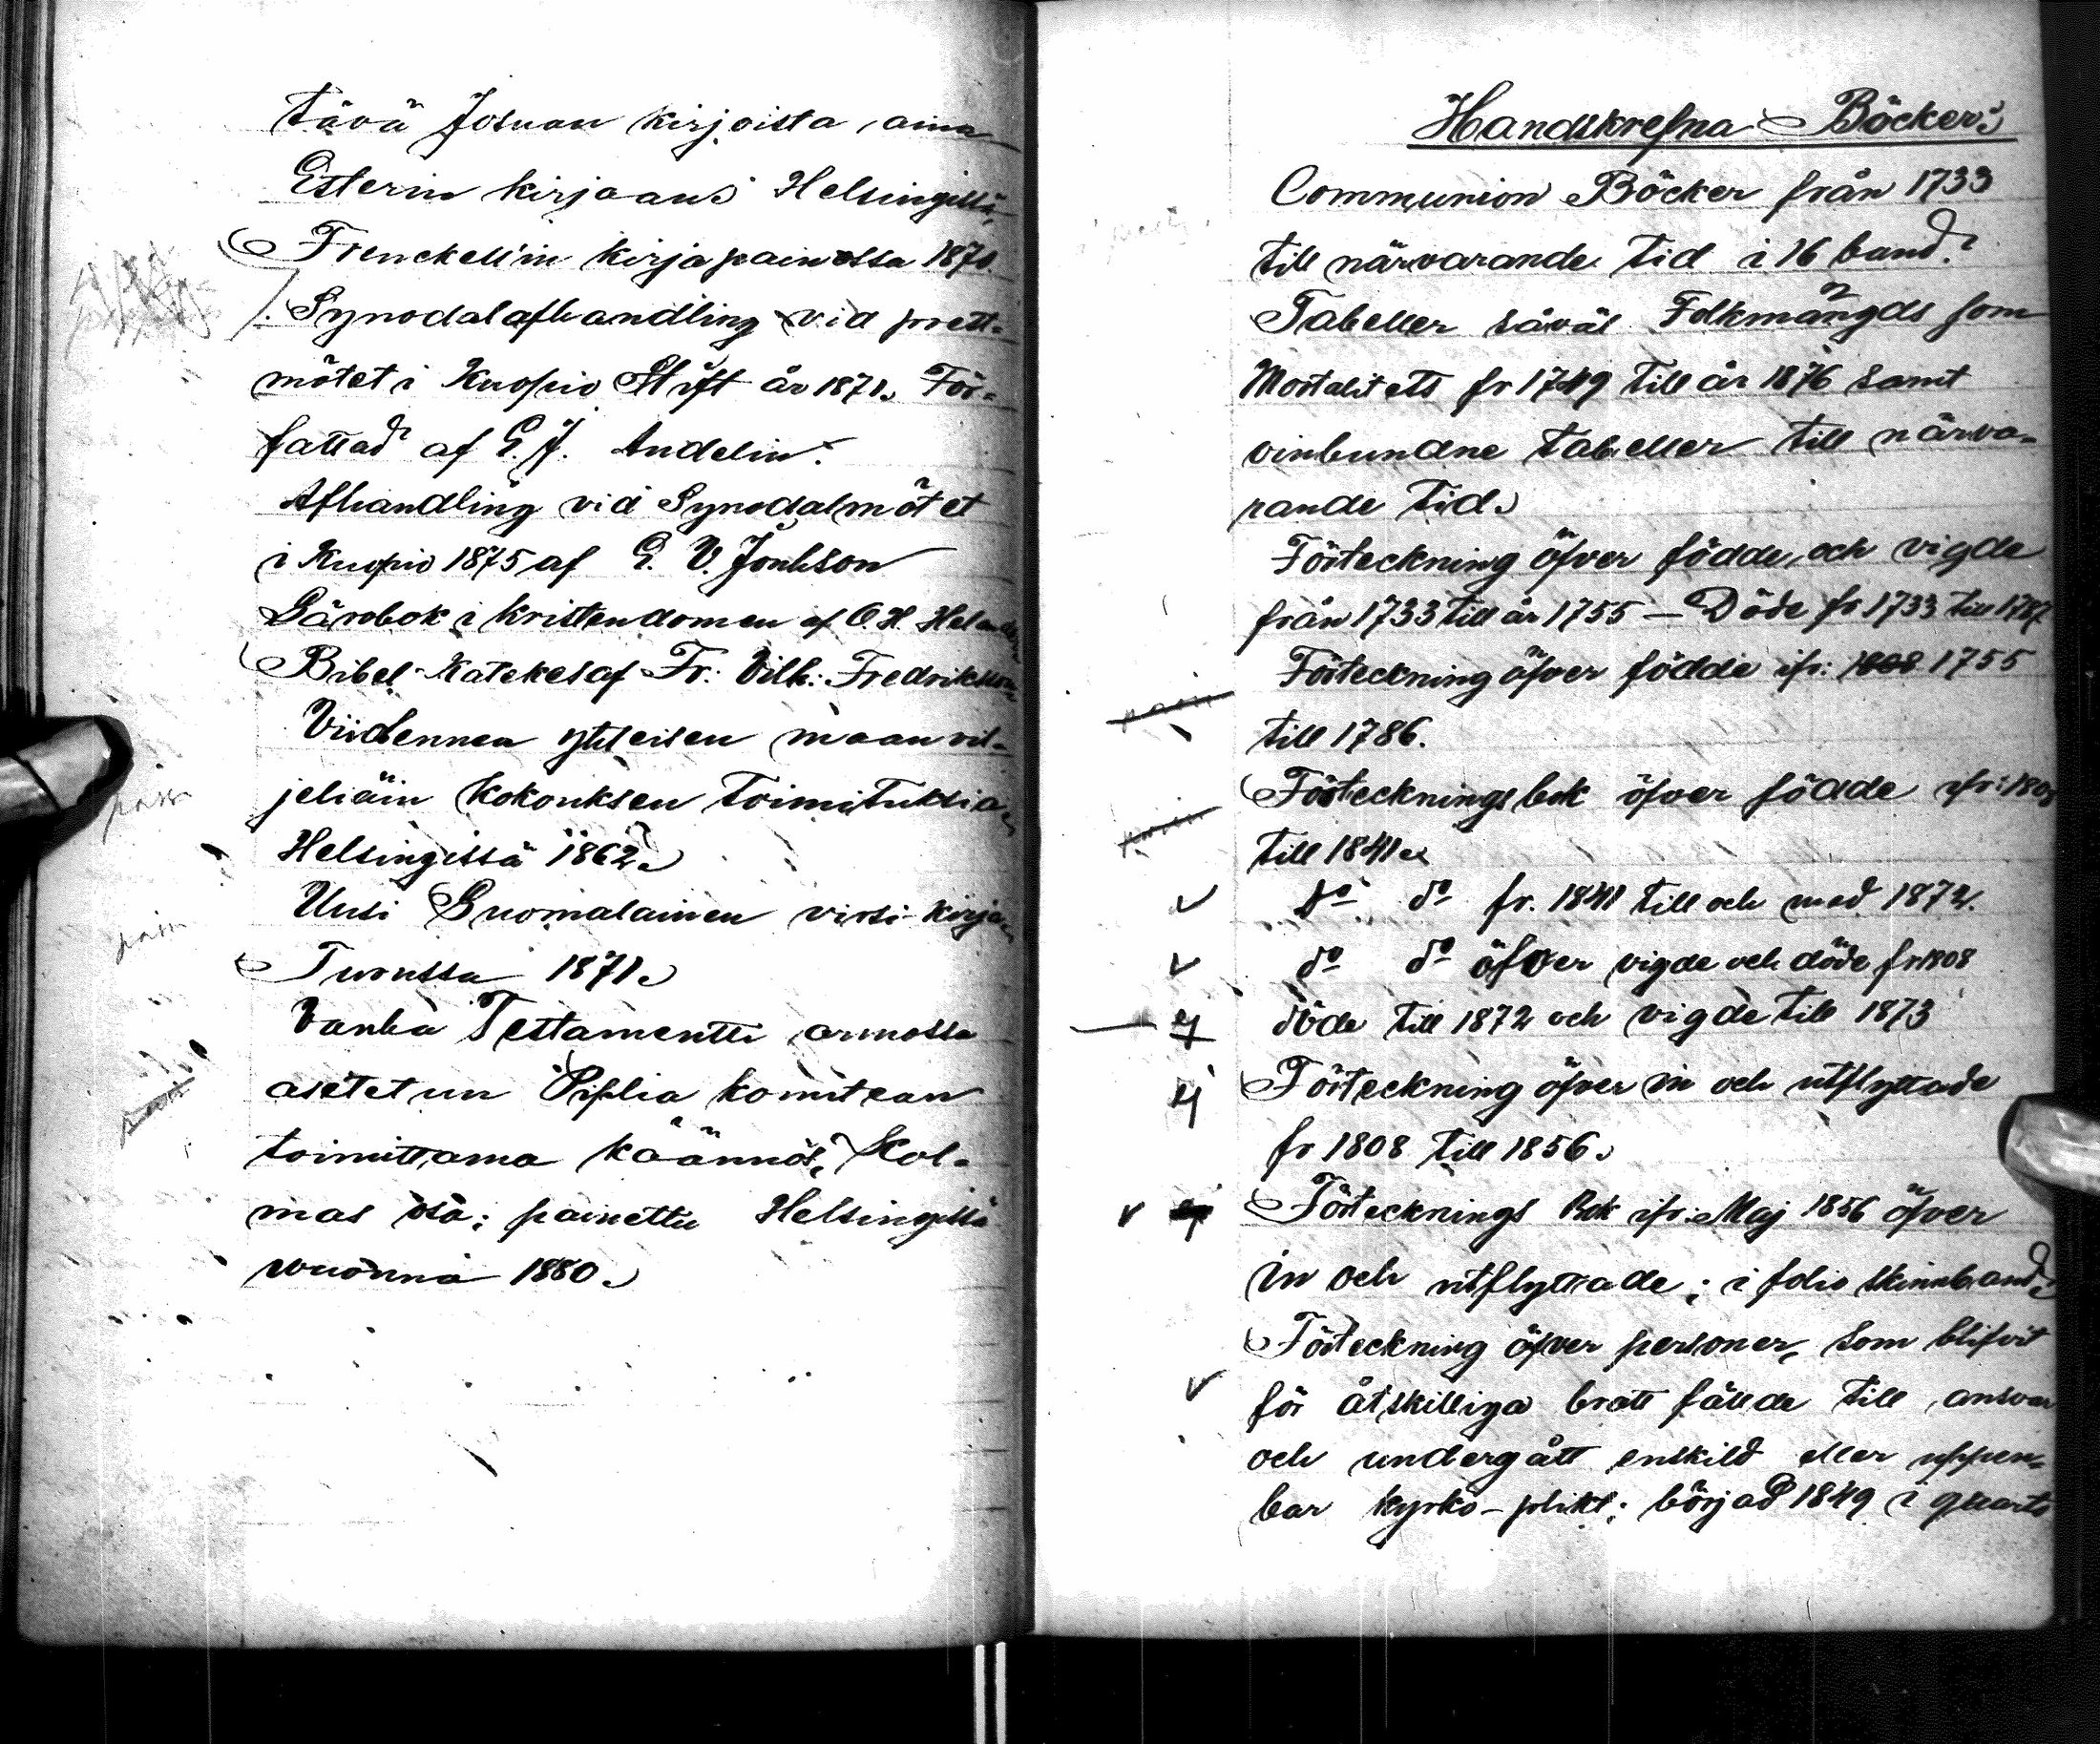 tävä Josuan kirjoista, aina
Esterin kirjaan; Helsingissä,
Frenckell'in kirjapainossa 1870.
Synodalafhandling vid prest-
mötet i Kuopio Stift år 1871. För-
fattad af E. J. Andelin.
Afhandling vid Synodalmötet
i Kuopio 1875 af E. V. Jonhson
Lärobok i kristendomen af O. H. Helander
Bibel-Katekes af Fr. Vilh. Fredrikson
Viidennen yhteisen maanvil-
jeliäin kokouksen toimituksia
Helsingissä 1862.
Uusi Suomalainen virsi-kirja
Turussa 1871.
Vanha Testamentti armossa
asetetun Piplia komitean
toimittama käännös; Kol-
mas osa; painettu Helsingissä
vuonna 1880.
pain
pain
Handskrefna Böcker:
Communion Böcker från 1733
till närvarande tid i 16 band.
Tabeller såväl Folkmängds som
Mortalitets fr 1749 till år 1876 samt
oinbundne tabeller till närva-
rande tid.
Förteckning öfver födde och vigde
från 1733 till år 1755 — Döde fr 1733 till 1787
Förteckning öfver födde ifr: 1808 1755
till 1786.
Förteckningsbok öfver födde ifr: 1808
till 1841.
do do fr. 1841 till och med 1872.
do do öfver vigde och döde fr 1808
ej döde till 1872 och vigde till 1873
ej Förteckning öfver in och utflyttade
fr 1808 till 1856.
ej Förtecknings Bok ifr. Maj 1856 öfver
in och utflyttade; i folio skinnband.
Förteckning öfver personer, som blifvit
för åtskilliga brott fällde till ansvar
och undergått enskild eller uppen-
bar kyrko-plikt; börjad 1849 i quarto